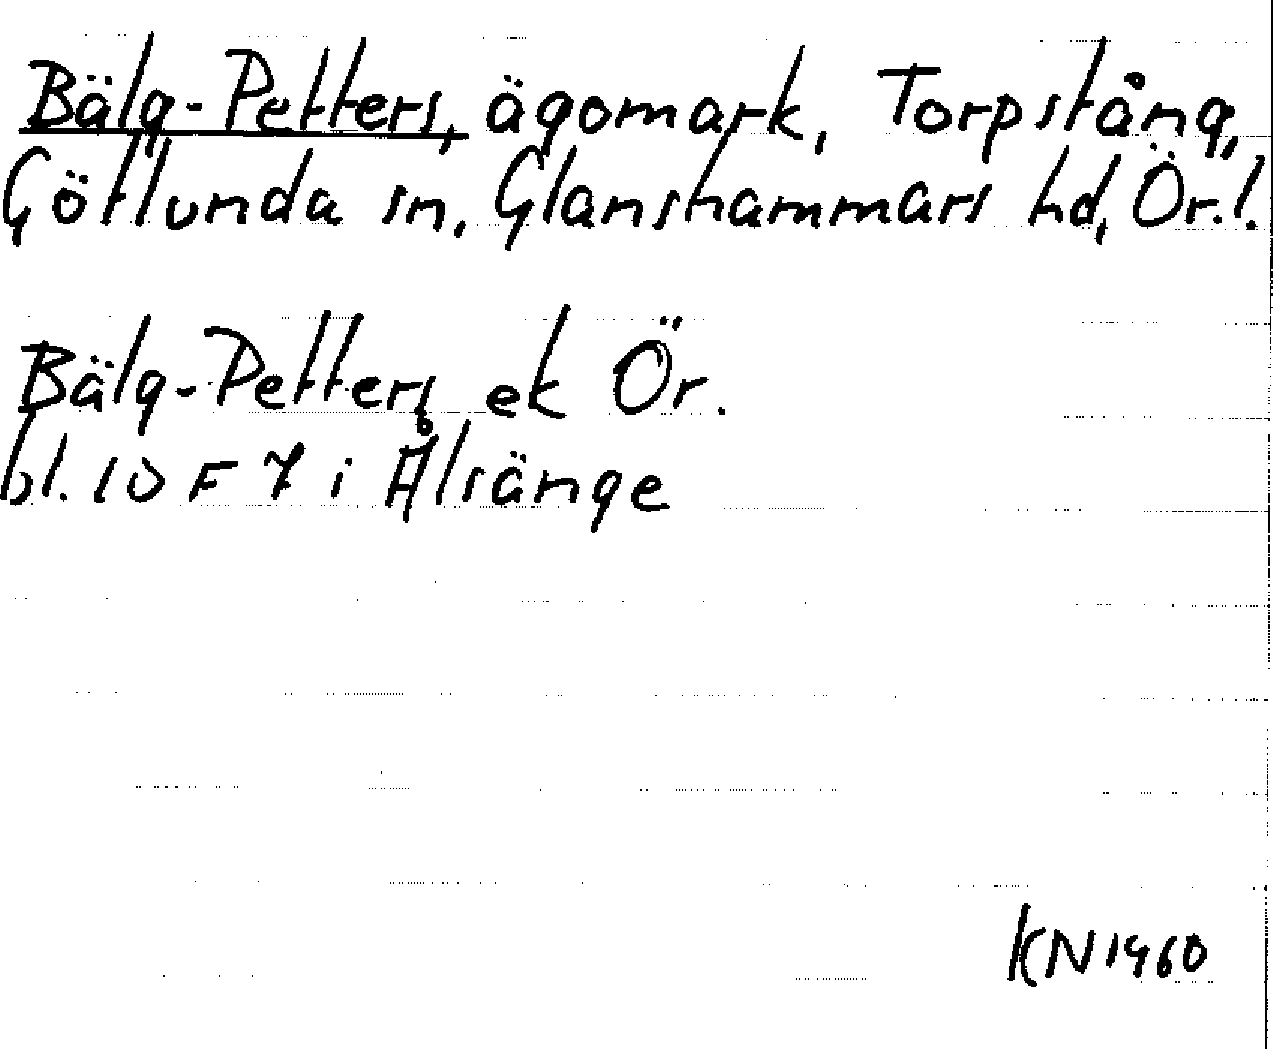 Bälg-Petters, ägomark, Torpstång,
Götlunda sn, Glanshammars hd, Ör.l.
Bälg-Petters ek Ör.
bl. 10 F 7 i Älsänge
KN 1960